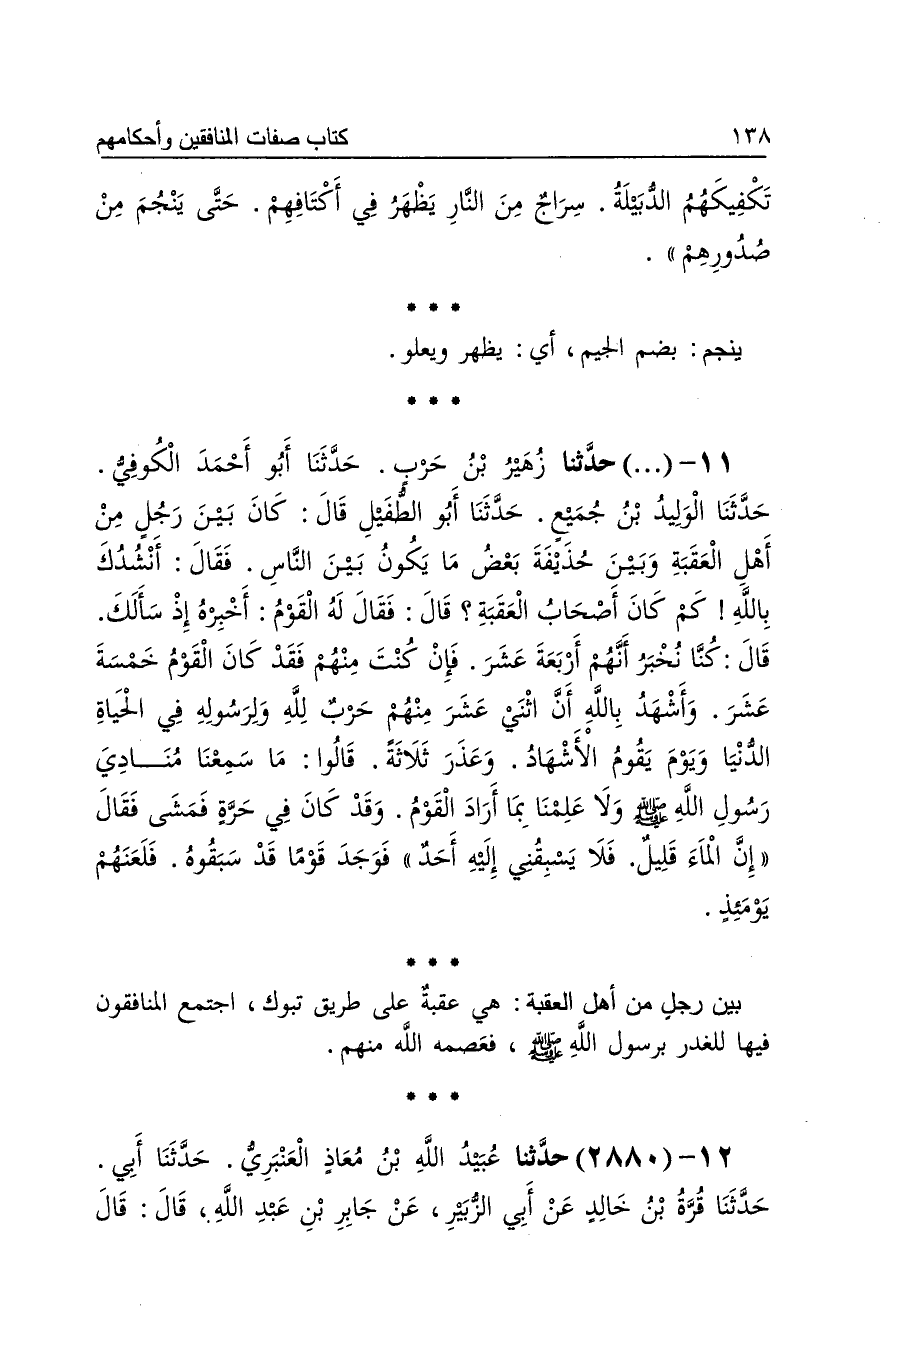 ١٣٨ كتاب صفات المنافقين وأحكامهم
تَكْفِيكَهُمُ الدُّبَيْلَةُ . سِرَاجٌ مِنَ النَّارِ يَظْهَرُ فِي أَكْتَافِهِمْ . حَتَّى يَنْجُمَ مِنْ
صُدُورِهِمْ » .
* * *
ينجم : بضم الجيم ، أي : يظهر ويعلو .
* * *
١١- (...) حدَّثنا زُهَيْرُ بْنُ حَرْبٍ . حَدَّثَنَا أَبُو أَحْمَدَ الْكُوفِيُّ .
حَدَّثَنَا الْوَلِيدُ بْنُ جُمَيْعٍ . حَدَّثَنَا أَبُو الطُّفَيْلِ قَالَ : كَانَ بَيْنَ رَجُلٍ مِنْ
أَهْلِ الْعَقَبَةِ وَبَيْنَ حُذَيْفَةَ بَعْضُ مَا يَكُونُ بَيْنَ النَّاسِ . فَقَالَ : أَنْشُدُكَ
بِاللَّهِ ! كَمْ كَانَ أَصْحَابُ الْعَقَبَةِ ؟ قَالَ : فَقَالَ لَهُ الْقَوْمُ : أَخْبِرْهُ إِذْ سَأَلَكَ.
قَالَ : كُنَّا نُخْبَرُ أَنَّهُمْ أَرْبَعَةَ عَشَرَ . فَإِنْ كُنْتَ مِنْهُمْ فَقَدْ كَانَ الْقَوْمُ خَمْسَةَ
عَشَرَ . وَأَشْهَدُ بِاللَّهِ أَنَّ اثْنَيْ عَشَرَ مِنْهُمْ حَرْبٌ لِلَّهِ وَلِرَسُولِهِ فِي الْحَيَاةِ
الدُّنْيَا وَيَوْمَ يَقُومُ الْأَشْهَادُ . وَعَذَرَ ثَلَاثَةً . قَالُوا : مَا سَمِعْنَا مُنَـــادِيَ
رَسُولِ اللَّهِ ﷺ وَلَا عَلِمْنَا بِمَا أَرَادَ الْقَوْمُ . وَقَدْ كَانَ فِي حَرَّةٍ فَمَشَى فَقَالَ
« إِنَّ الْمَاءَ قَلِيلٌ. فَلَا يَسْبِقُنِي إِلَيْهِ أَحَدٌ » فَوَجَدَ قَوْمًا قَدْ سَبَقُوهُ . فَلَعَنَهُمْ
يَوْمَئِذٍ .
* * *
بين رجلٍ من أهل العقبة : هي عقبةٌ على طريق تبوك ، اجتمع المنافقون
فيها للغدر برسول اللَّهِ ﷺ ، فعَصمه اللَّه منهم .
* * *
١٢- (٢٨٨٠) حدَّثنا عُبَيْدُ اللَّهِ بْنُ مُعَاذٍ الْعَنْبَرِيُّ . حَدَّثَنَا أَبِي .
حَدَّثَنَا قُرَّةُ بْنُ خَالِدٍ عَنْ أَبِي الزُّبَيْرِ ، عَنْ جَابِرِ بْنِ عَبْدِ اللَّهِ ، قَالَ : قَالَ